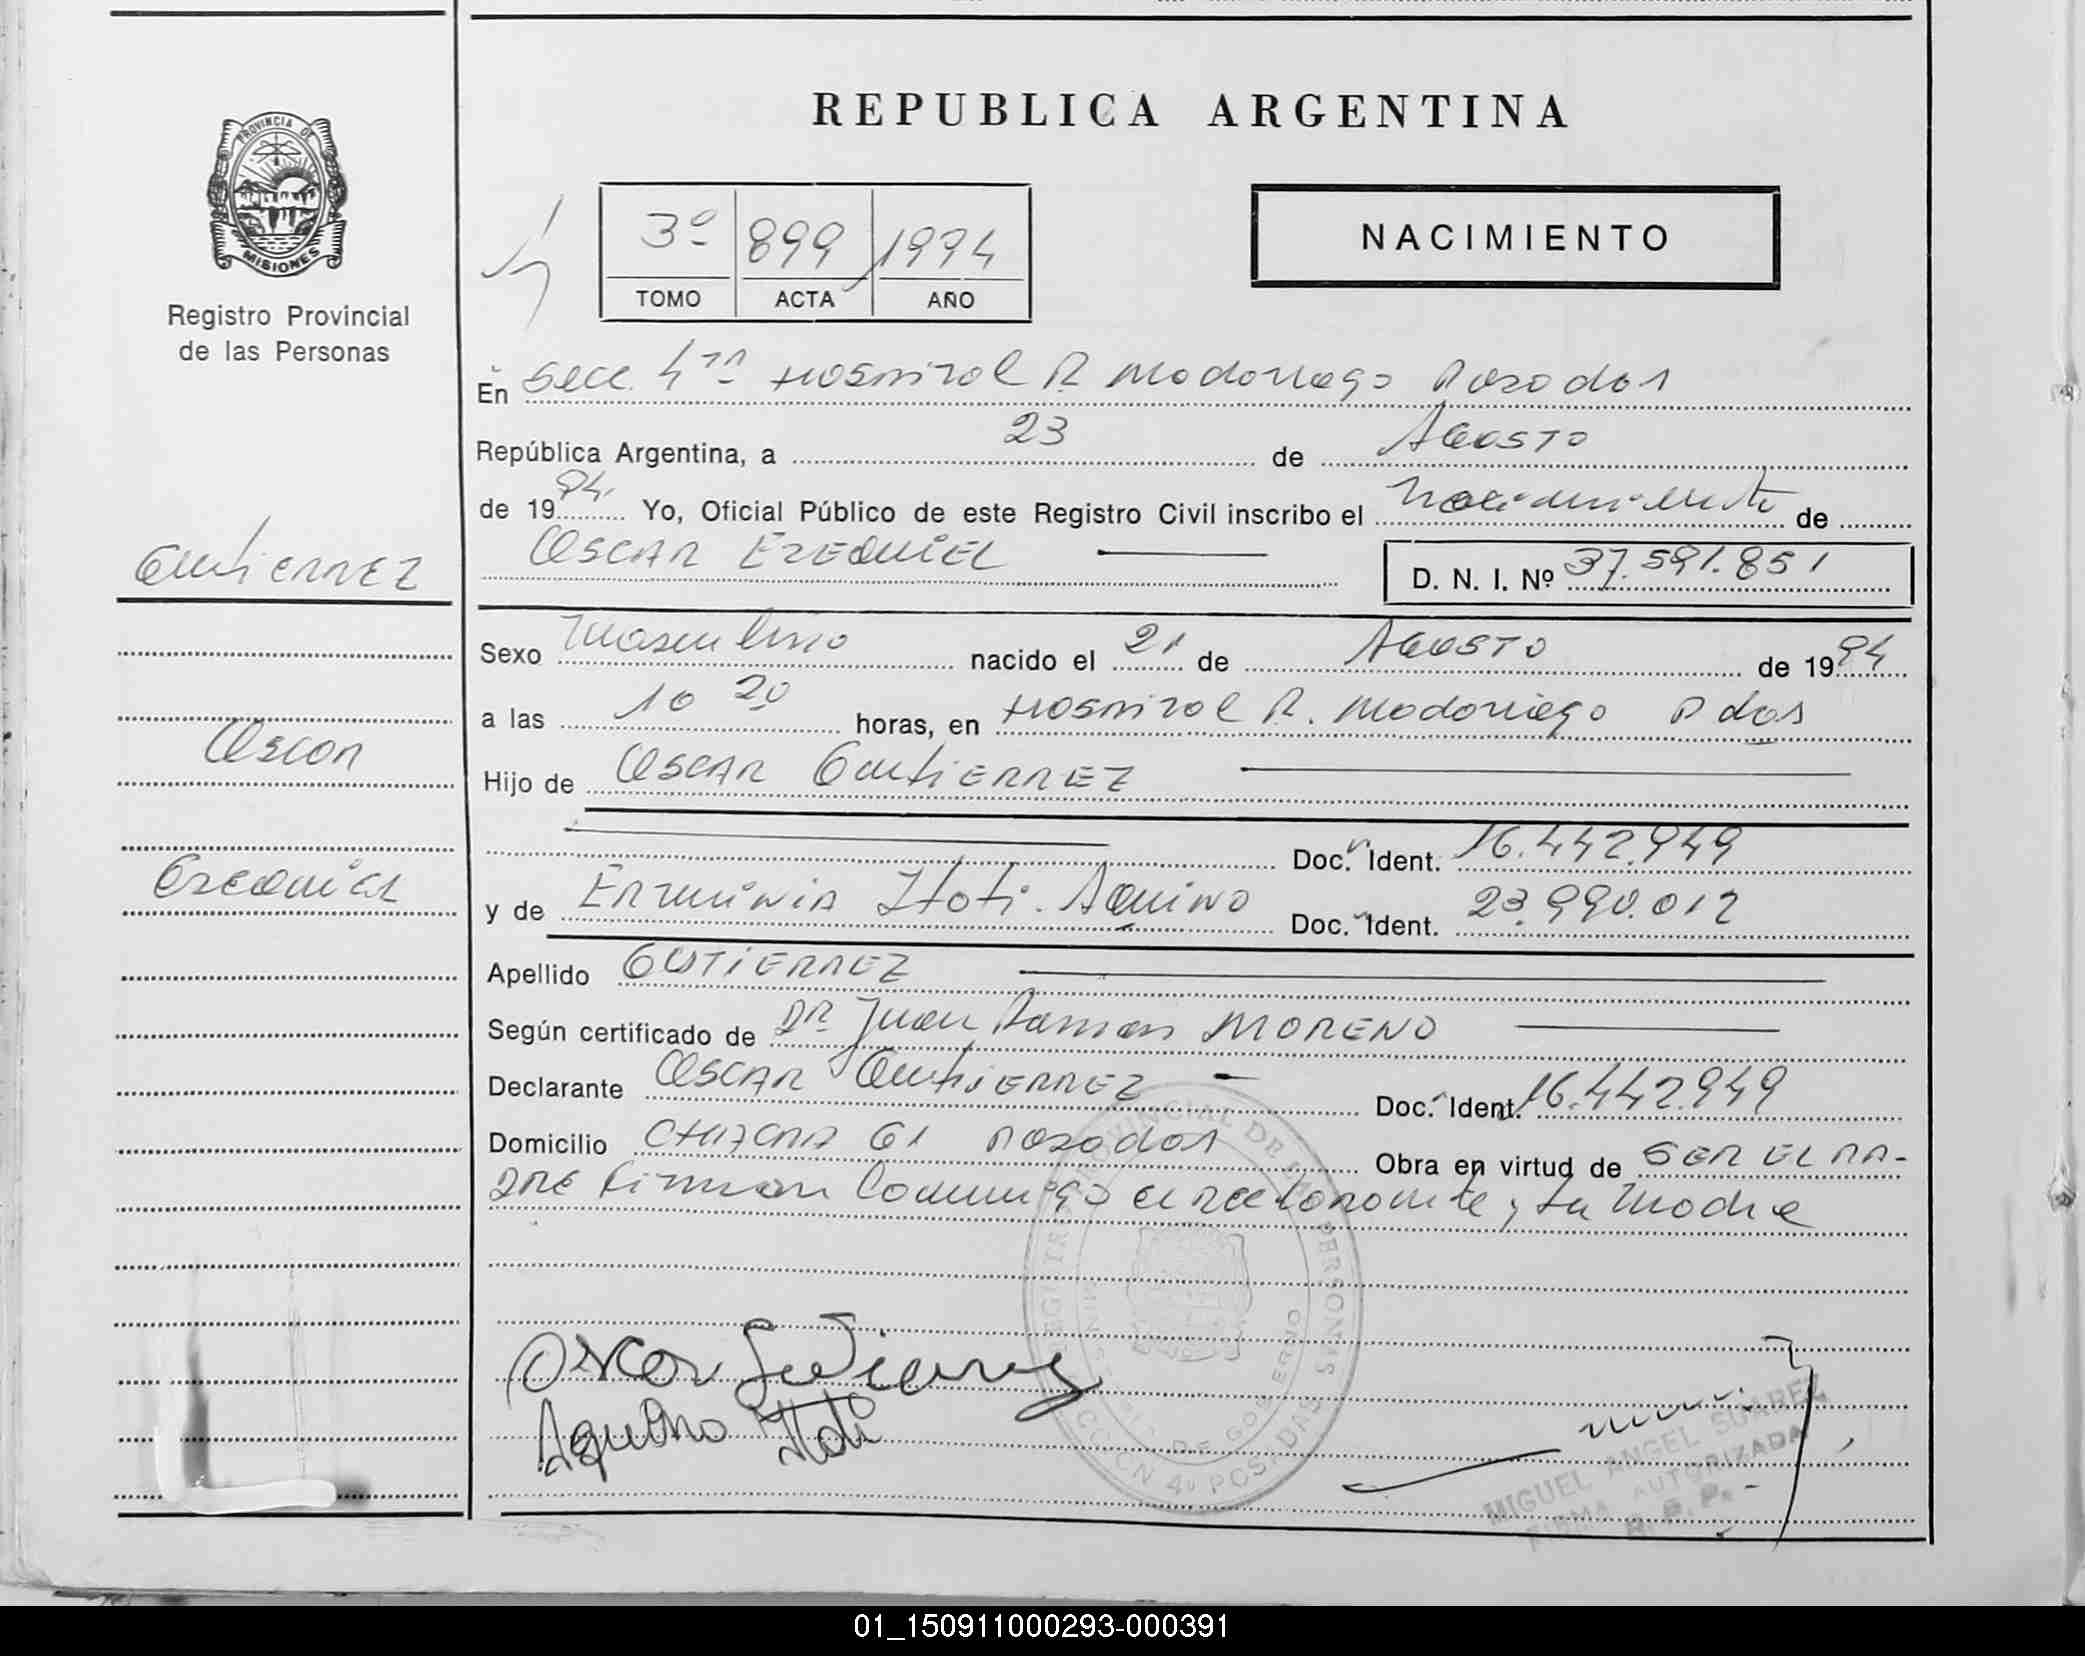 REPUBLICA ARGENTINA
PROVINCIA DE
MISIONES
Registro Provincial
de las Personas
3º 899 1994
TOMO ACTA AÑO
NACIMIENTO
En Secc. 4ta Hospital R. Madariaga Posadas
República Argentina, a 23 de Agosto
de 1994. Yo, Oficial Público de este Registro Civil inscribo el nacimiento de
OSCAR EZEQUIEL D. N. I. Nº 37.591.851
Gutierrez
Sexo Masculino nacido el 21 de AGOSTO de 1994
a las 10 20 horas, en Hospital R. Madariaga Pdas
Oscar
Hijo de OSCAR GutiERREZ
Doc. Ident. 16.442.949
Ezequiel
y de Erminia Itati Aquino Doc. Ident. 23.990.012
Apellido GUTiERREZ
Según certificado de DR Juan Ramon MORENO
Declarante OSCAR GutiERREZ Doc. Ident. 16.442.949
Domicilio CHACRA 61 Posadas Obra en virtud de SER EL PA-
DRE Firman Conmigo el declarante y la Madre
REGISTRO PROVINCIAL DE LAS PERSONAS
MINISTERIO DE GOBIERNO
SECCION 4ª POSADAS
Oscar Gutierrez
Aquino Itati
MIGUEL ANGEL SUAREZ
FIRMA AUTORIZADA
R. P. P.
01_150911000293-000391